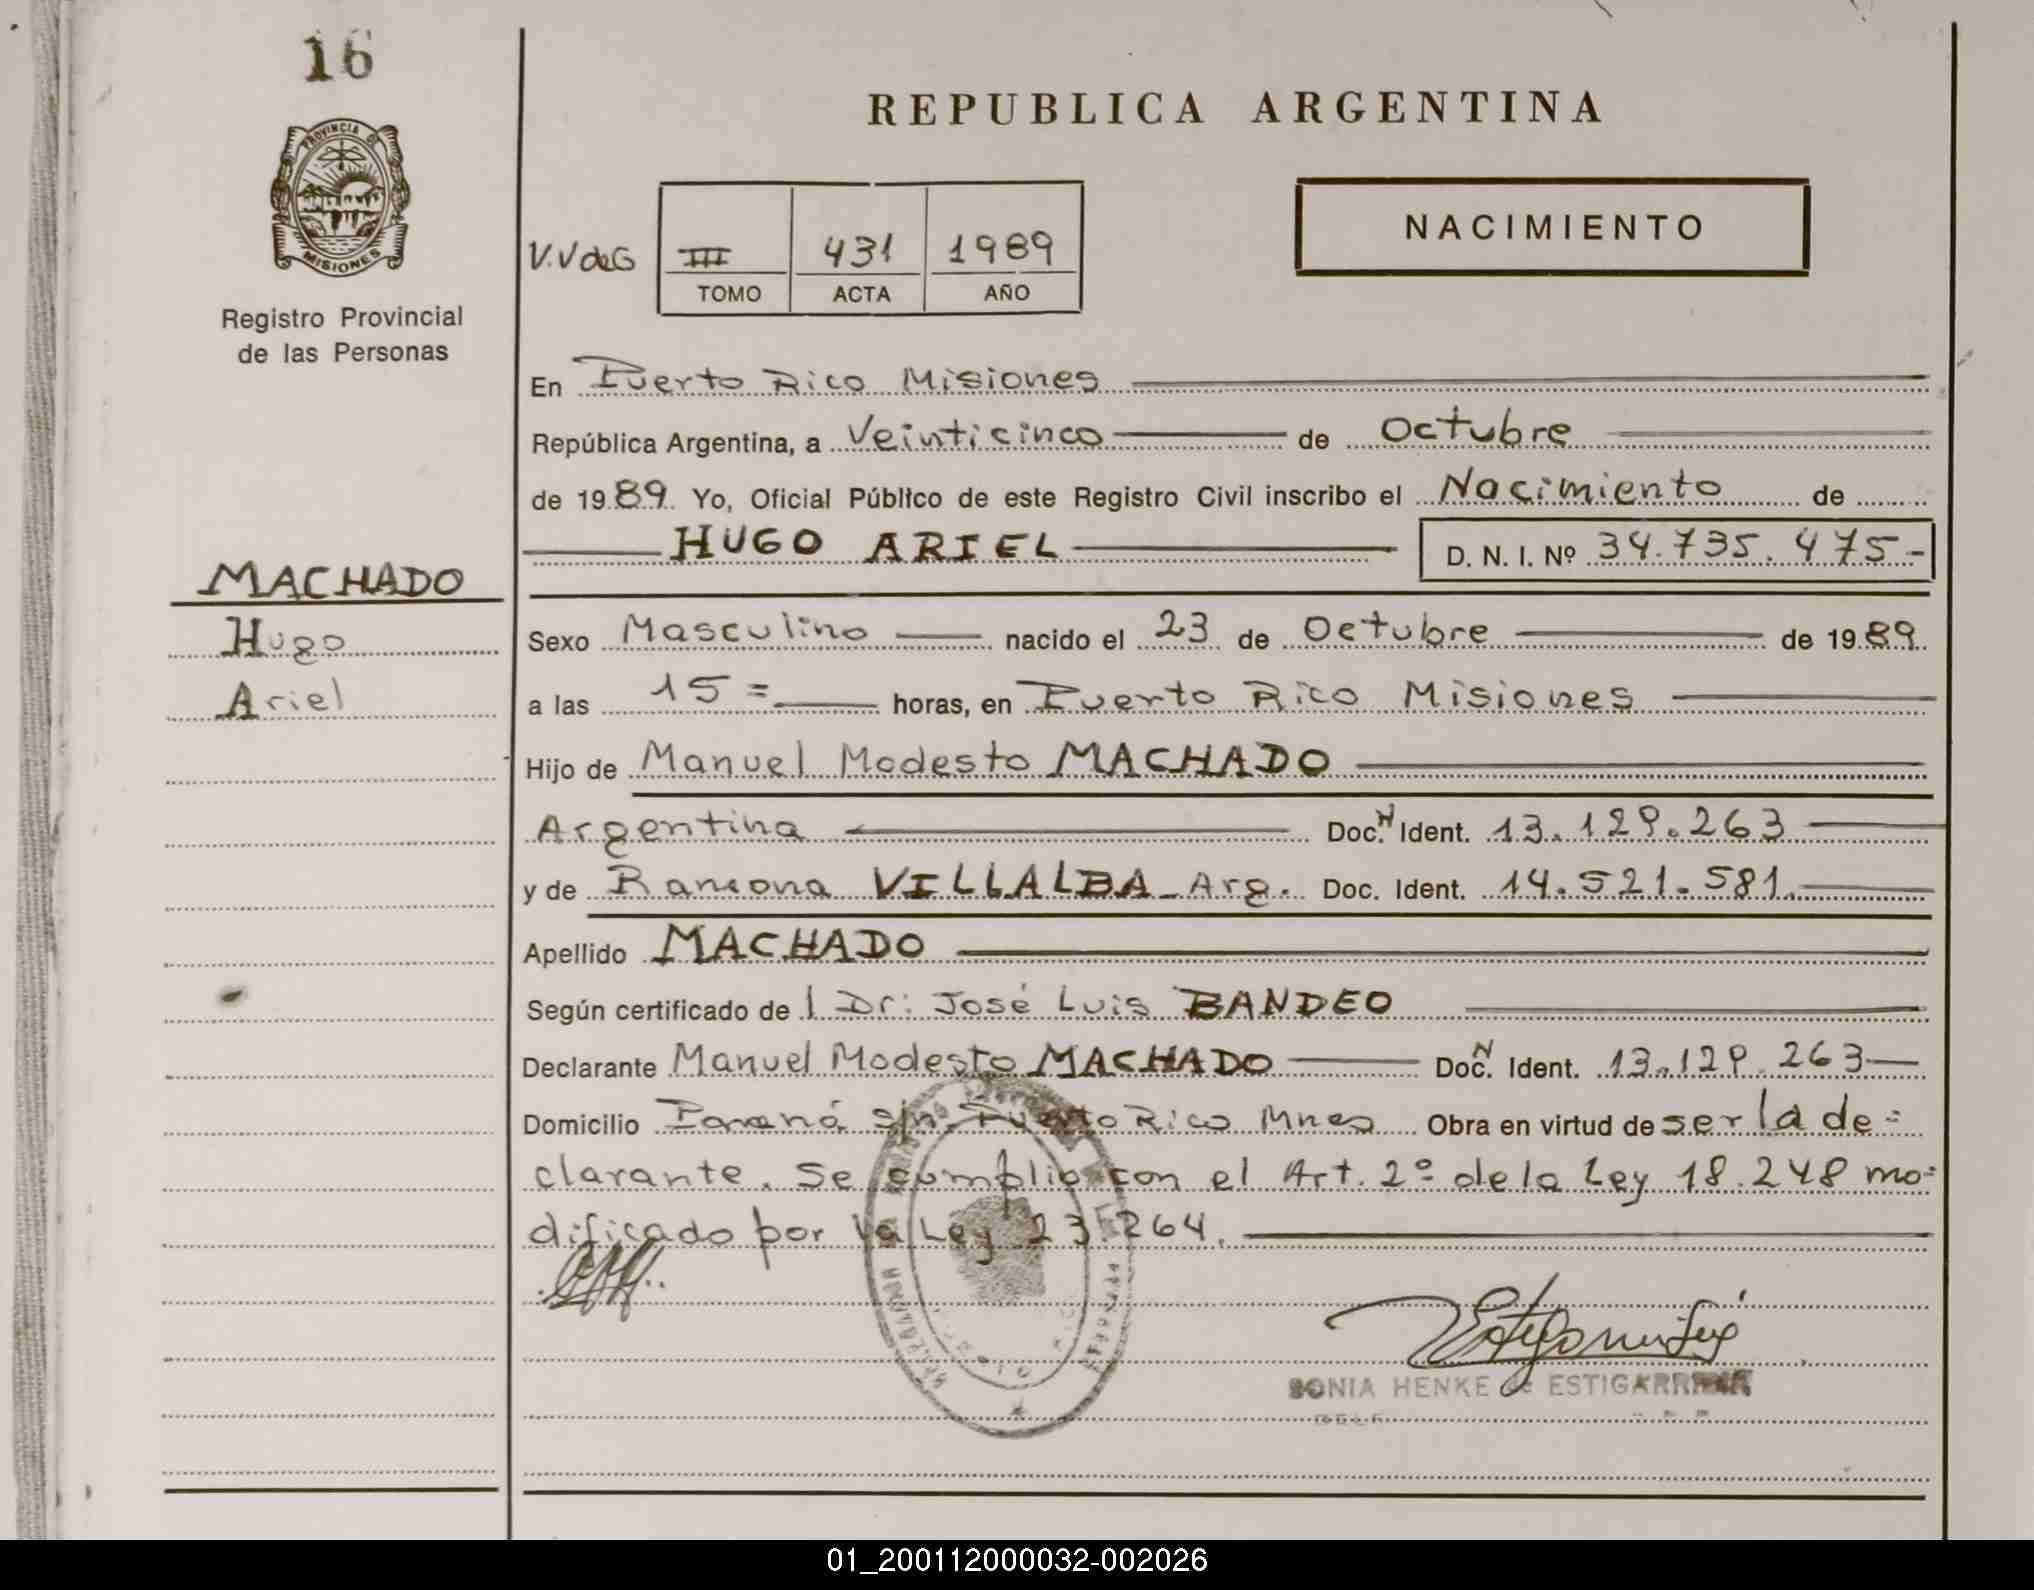 16
REPUBLICA ARGENTINA
PROVINCIA DE
MISIONES
NACIMIENTO
V.V de G
III 431 1989
TOMO ACTA AÑO
Registro Provincial
de las Personas
En Puerto Rico Misiones
República Argentina, a Veinticinco de Octubre
de 1989. Yo, Oficial Público de este Registro Civil inscribo el Nacimiento de
HUGO ARIEL D. N. I. Nº 34.735.475.-
MACHADO
Hugo
Ariel
Sexo Masculino nacido el 23 de Octubre de 1989.
a las 15= horas, en Puerto Rico Misiones
Hijo de Manuel Modesto MACHADO
Argentina Doc. N Ident. 13.129.263
y de Ramona VILLALBA - Arg. Doc. Ident. 14.521.581.
Apellido MACHADO
Según certificado de l Dr: José Luis BANDEO
Declarante Manuel Modesto MACHADO Doc. N Ident. 13.129.263
Domicilio Paraná s/n. Puerto Rico Mnes Obra en virtud de ser la de=
clarante. Se cumplio con el Art. 2º de la Ley 18.248 mo=
dificado por la Ley 23.264.
SONIA HENKE de ESTIGARRIBIA
01_200112000032-002026